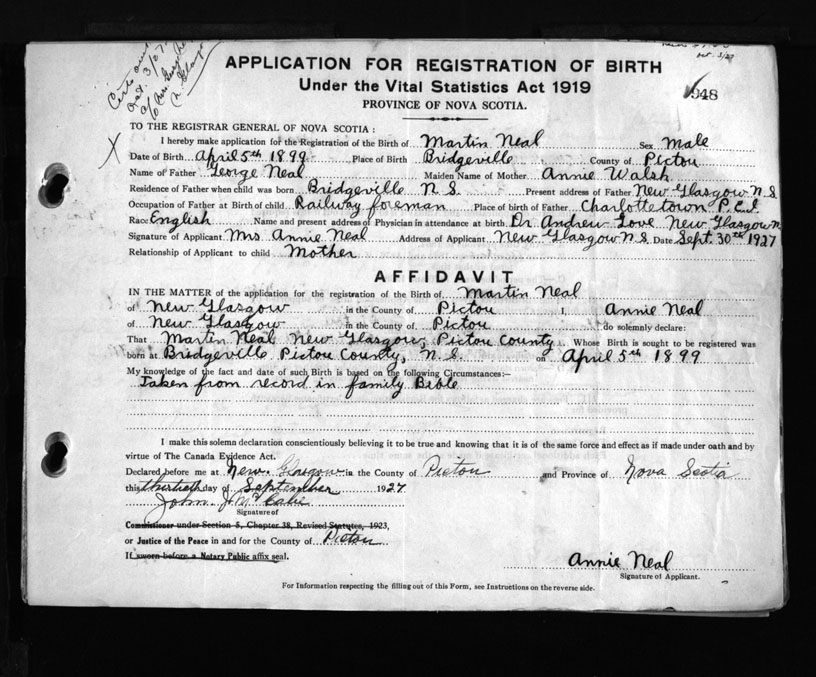 Certe
Oct. 3/27
APPLICATION FOR REGISTRATION OF BIRTH
Under the Vital Statistics Act 1919
PROVINCE OF NOVA SCOTIA.
948
TO THE REGISTRAR GENERAL OF NOVA SCOTIA:
X
I hereby make application for the Registration of the Birth of Martin Neal Sex Male
Date of Birth April 5th 1899 Place of Birth Bridgeville County of Pictou
Name of Father George Neal Maiden Name of Mother Annie Walsh
Residence of Father when child was born Bridgeville N.S. Present address of Father New Glasgow N.S
Occupation of Father at Birth of child Railway foreman Place of birth of Father Charlottetown P.E.I.
Race English Name and present address of Physician in attendance at birth Dr Andrew Love New Glasgow N
Signature of Applicant Mrs Annie Neal Address of Applicant New Glasgow N.S. Date Sept. 30th 1927
Relationship of Applicant to child Mother
AFFIDAVIT
IN THE MATTER of the application for the registration of the Birth of Martin Neal
of New Glasgow in the County of Pictou I, Annie Neal
of New Glasgow in the County of Pictou do solemnly declare:
That Martin Neal New Glasgow, Pictou County Whose Birth is sought to be registered was
born at Bridgeville Pictou County, N.S. on April 5th 1899
My knowledge of the fact and date of such Birth is based on the following Circumstances:—
Taken from record in family Bible
I make this solemn declaration conscientiously believing it to be true and knowing that it is of the same force and effect as if made under oath and by
virtue of The Canada Evidence Act.
Declared before me at New Glasgow in the County of Pictou and Province of Nova Scotia
this thirtieth day of September 1927
John J. McCabe
Signature of
Commissioner under Section 5, Chapter 38, Revised Statutes, 1923,
or Justice of the Peace in and for the County of Pictou
If sworn before a Notary Public affix seal.
Annie Neal
Signature of Applicant.
For Information respecting the filling out of this Form, see Instructions on the reverse side.